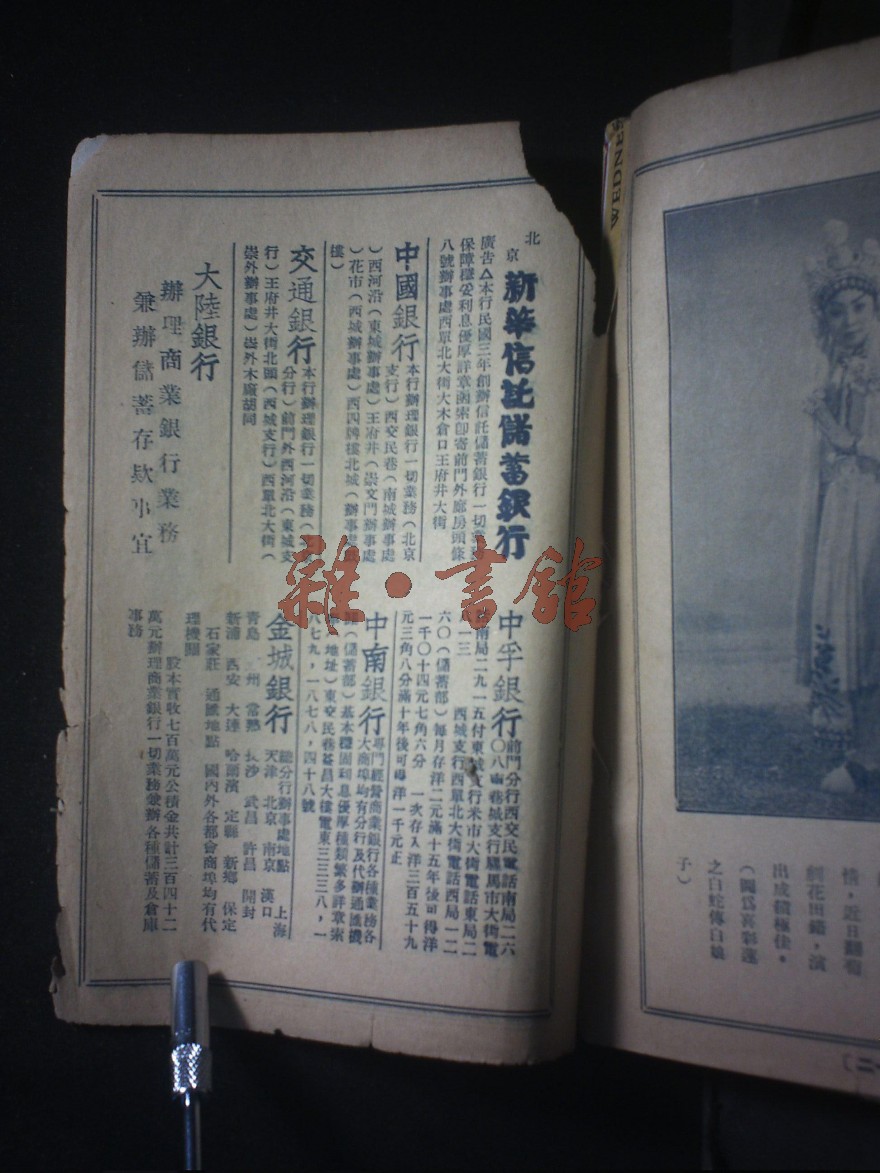 北京
新華信託儲蓄銀行
廣告△本行民國三年創辦信託儲蓄銀行一切業務
保障穩妥利息優厚詳章函索卽寄前門外廊房頭條
八號辦事處西單北大街大木倉口王府井大街
中國銀行
本行辦理銀行一切業務(北京
支行)西交民巷(南城辦事處
)西河沿(東城辦事處)王府井(崇文門辦事處
)花市(西城辦事處)西四牌樓北城(辦事處鼓
樓)
交通銀行
本行辦理銀行一切業務(北京
分行)前門外西河沿(東城支
行)王府井大街北頭(西城支行)西單北大街(
崇外辦事處)崇外木廠胡同
大陸銀行
辦理商業銀行業務
兼辦儲蓄存欵事宜
中孚銀行
前門分行西交民電話南局二六
〇八 巷城支行騾馬市大街電
南局二九一五付東城支行米市大街電話東局二
一三 西城支行西單北大街電話西局一二
六〇(儲蓄部)每月存洋二元滿十五年後可得洋
一千〇十四元七角六分 一次存入洋三百五十九
元三角八分滿十年後可得洋一千元正
中南銀行
專門經營商業銀行各種業務各
大商埠均有分行及代辦通匯機
關(儲蓄部)基本穩固利息優厚種類繁多詳章索
(地址)東交民巷 昌大樓電東三三三八,一
八七九,一八七八,四十八號
金城銀行
總分行辦事處地點 上海
天津 北京 南京 漢口
青島 州 常熟 長沙 武昌 許昌 開封
新浦 西安 大連 哈爾濱 定縣 新鄉 保定
石家莊 通匯地點 國內外各都會商埠均有代
理機關
股本實收七百萬元公積金共計三百四十二
萬元辦理商業銀行一切業務兼辦各種儲蓄及倉庫
事務
雜·書館
WEDNES
情,近日翻
花田錯,演
出成績極佳。
(圖爲喜彩蓮
之白蛇傳白娘
子)
二